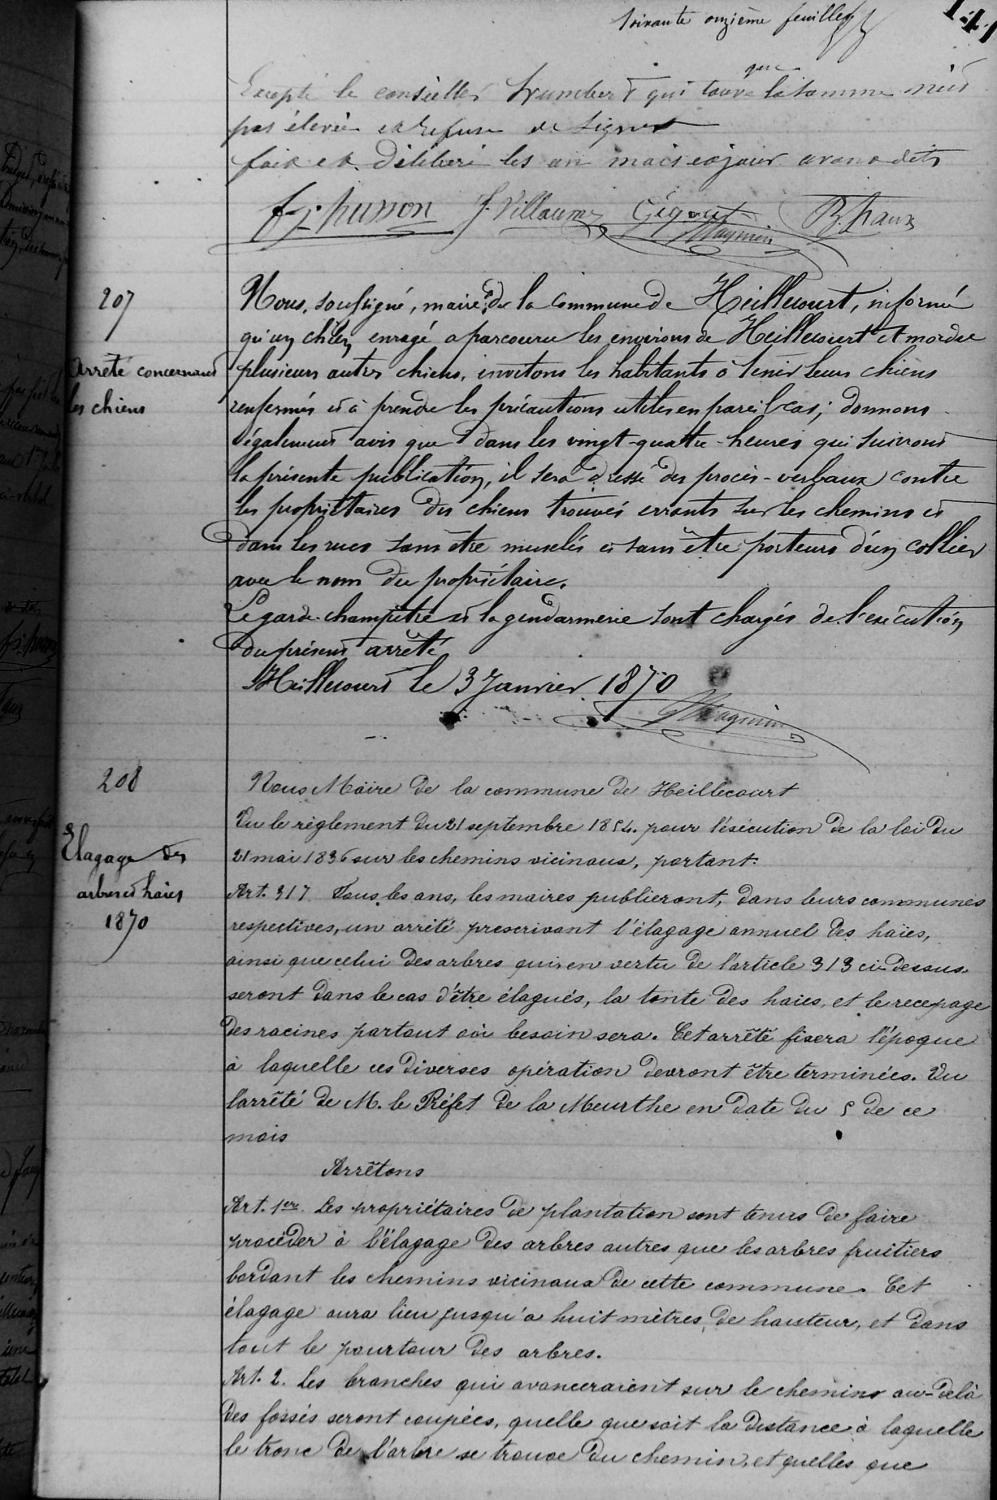 Soixante onzième feuillet
141
Excepté le conseiller Humbert qui trouve que la somme n'est
pas élevée et refuse de signer
fait et délibéré les an mois et jour avant dits
f. j. husson J. Villaume Gégout Rthaux
Magnien
207
Arrêté concernant
les chiens
Nous, soussigné, maire de la Commune de Heillecourt, informé
qu'un chien enragé a parcouru les environs de Heillecourt et mordu
plusieurs autres chiens, invitons les habitants à tenir leurs chiens
renfermés et à prendre les précautions utiles en pareil cas; donnons
également avis que dans les vingt-quatre heures qui suivront
la présente publication, il sera dressé des procès-verbaux contre
les propriétaires des chiens trouvés errants sur les chemins et
dans les rues sans être muselés et sans être porteurs d'un collier
avec le nom du propriétaire.
Le garde-champêtre et la gendarmerie sont chargés de l'exécution
du présent arrêté
Heillecourt le 3 Janvier 1870
Magnien
208
Elagage des
arbres et haies
1870
Nous Maire de la commune de Heillecourt
Vu le règlement du 21 septembre 1854. pour l'exécution de la loi du
21 mai 1836 sur les chemins vicinaux, portant.
Art. 317 Tous les ans, les maires publieront, dans leurs communes
respectives, un arrêté prescrivant l'élagage annuel des haies,
ainsi que celui des arbres qui en vertu de l'article 313 ci-dessus.
seront dans le cas d'être élagués, la tonte des haies, et le recepage
des racines partout où besoin sera. Cet arrêté fixera l'époque
à laquelle ces diverses opération devront être terminées. Vu
l'arrêté de M. le Préfet de la Meurthe en date du 5 de ce
mois
Arrêtons
Art. 1er Les propriétaires de plantation sont tenus de faire
procéder à l'élagage des arbres autres que les arbres fruitiers
bordant les chemins vicinaux de cette commune. Cet
élagage aura lieu jusqu'a huit mètres de hauteur, et dans
tout le pourtour des arbres.
Art. 2. Les branches qui avanceraient sur le chemins au-delà
des fossés seront coupées, quelle que soit la distance à laquelle
le tronc de l'arbre se trouve du chemin, et quelles que